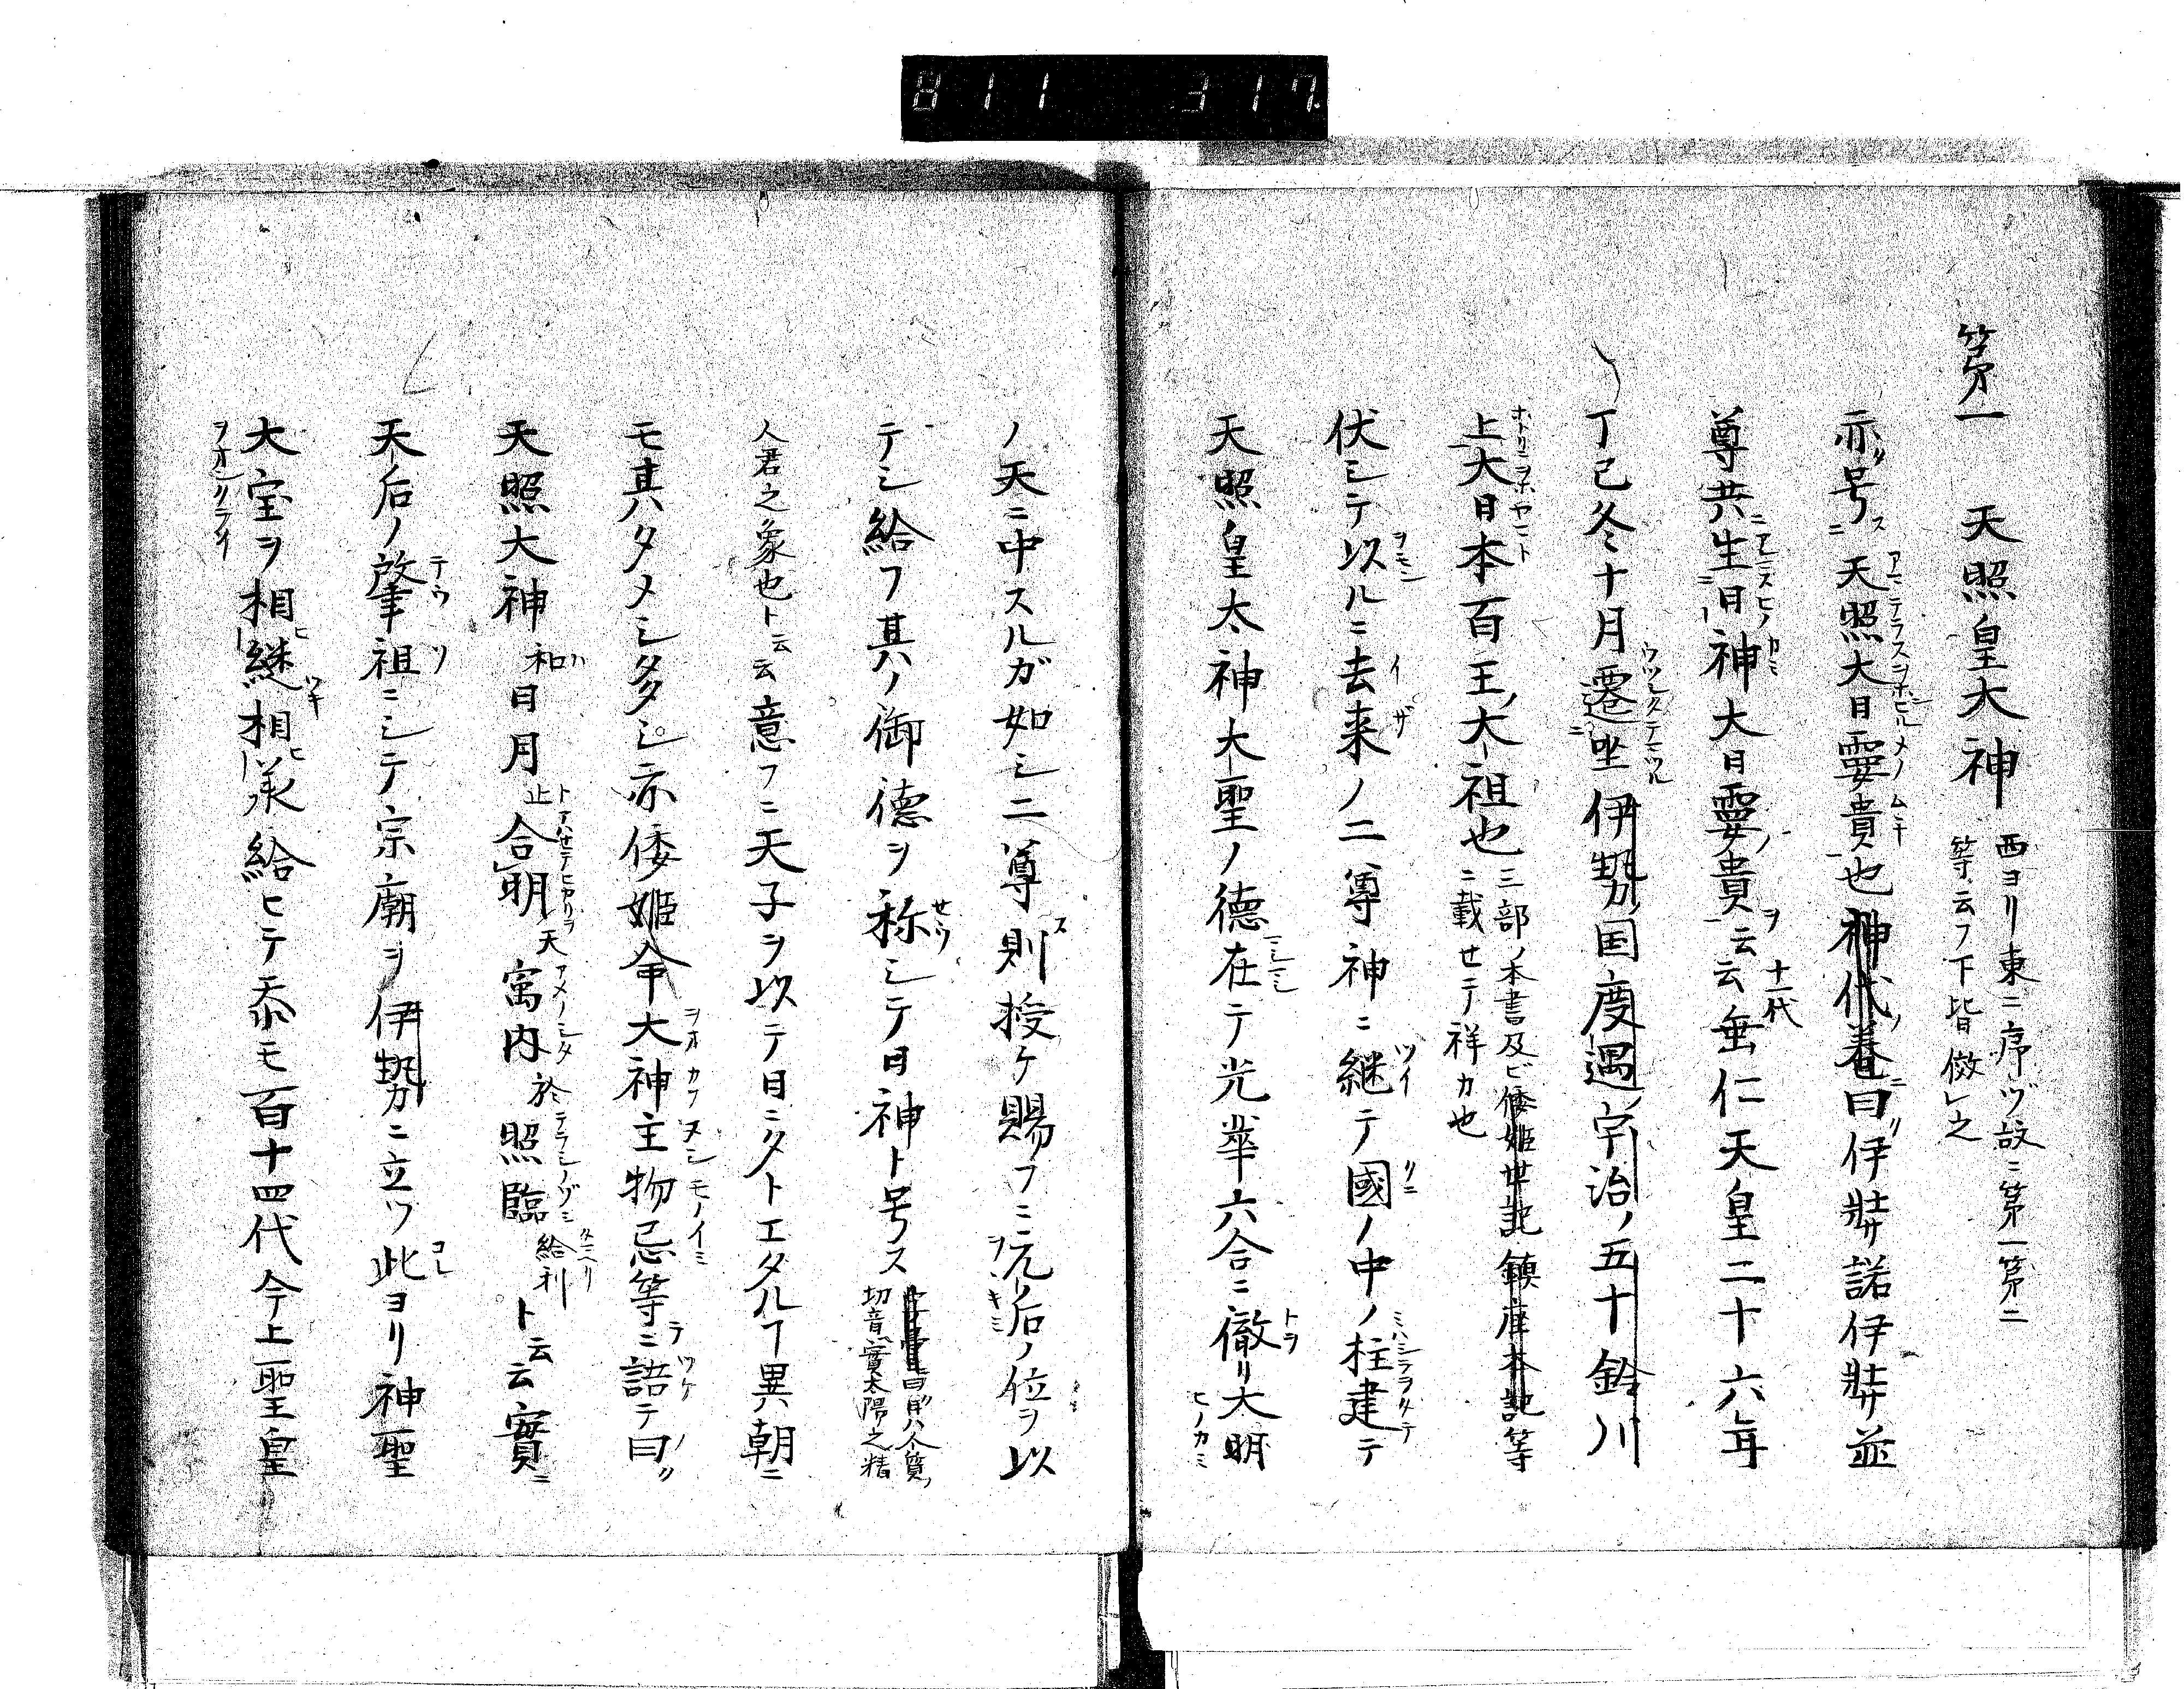 811 317
第一 天照皇大神 西ヨリ東ニ序ヅ故ニ第一第二
等云フ下皆倣之
亦号天照大日孁貴也神代巻曰伊弉諾伊弉並
尊共生日神大日孁貴云云十一代垂仁天皇二十六年
丁巳冬十月遷坐伊勢国度遇宇治ノ五十鈴川
上大日本百王ノ大祖也 三部ノ本書及ビ倭姫世記鎮座本記等
ニ載セテ祥カ也
伏シテ以ルニ去来ノ二尊神ニ継テ國ノ中ノ柱建テ
天照皇太神大聖ノ徳在テ光華六合ニ徹リ大明
ノ天ニ中スルガ如シ二尊則授ケ賜フニ元后ノ位ヲ以
テシ給フ其ノ御徳ヲ称シテ日神ト号ス
切音實太陽之精
人君之象也ト云云意フニ天子ヲ以テ日ニタトエタルヿ異朝ニ
モ其タメシ多シ亦倭姫命大神主物忌等ニ語テ曰
天照大神和日月止合明天寓内於照臨給利ト云云實ニ
天后ノ肇祖ニシテ宗廟ヲ伊勢ニ立ツ此ヨリ神聖
大宝ヲ相継相承給ヒテ忝モ百十四代今上聖皇